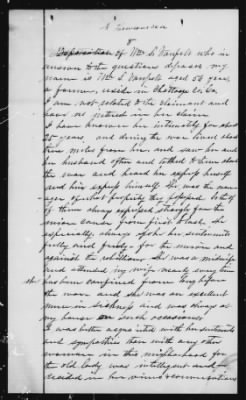 8
Deposition of Wm S. Vanpelt who in
answer to the questions deposes my
name is Wm S Vanpelt aged 56 years
a farmer, reside in Chattooga Co. Ga.
I am not related to the claimant and
have no interest in her claim.
I have known her intimately for about
25 years and during the war lived about
three miles from her, and saw her and
her husband often and talked to them about
the war and heard her express herself
and him express himself. She was the man-
ager of what property they possessed. both
of them always expressed strongly for the
union cause from first to last. She
especially always spoke her sentiments
fully and freely - for the union and
against the rebellion. She was a midwife
and attended my wife nearly every time
she has been confined from long before
the war, and she was an excellent
nurse in sickness and was always at
my house on such occasions
I was better acquainted with her sentiments
and sympathies than with any other
woman in this neighborhood for
the old lady was intelligent and
decided in her union